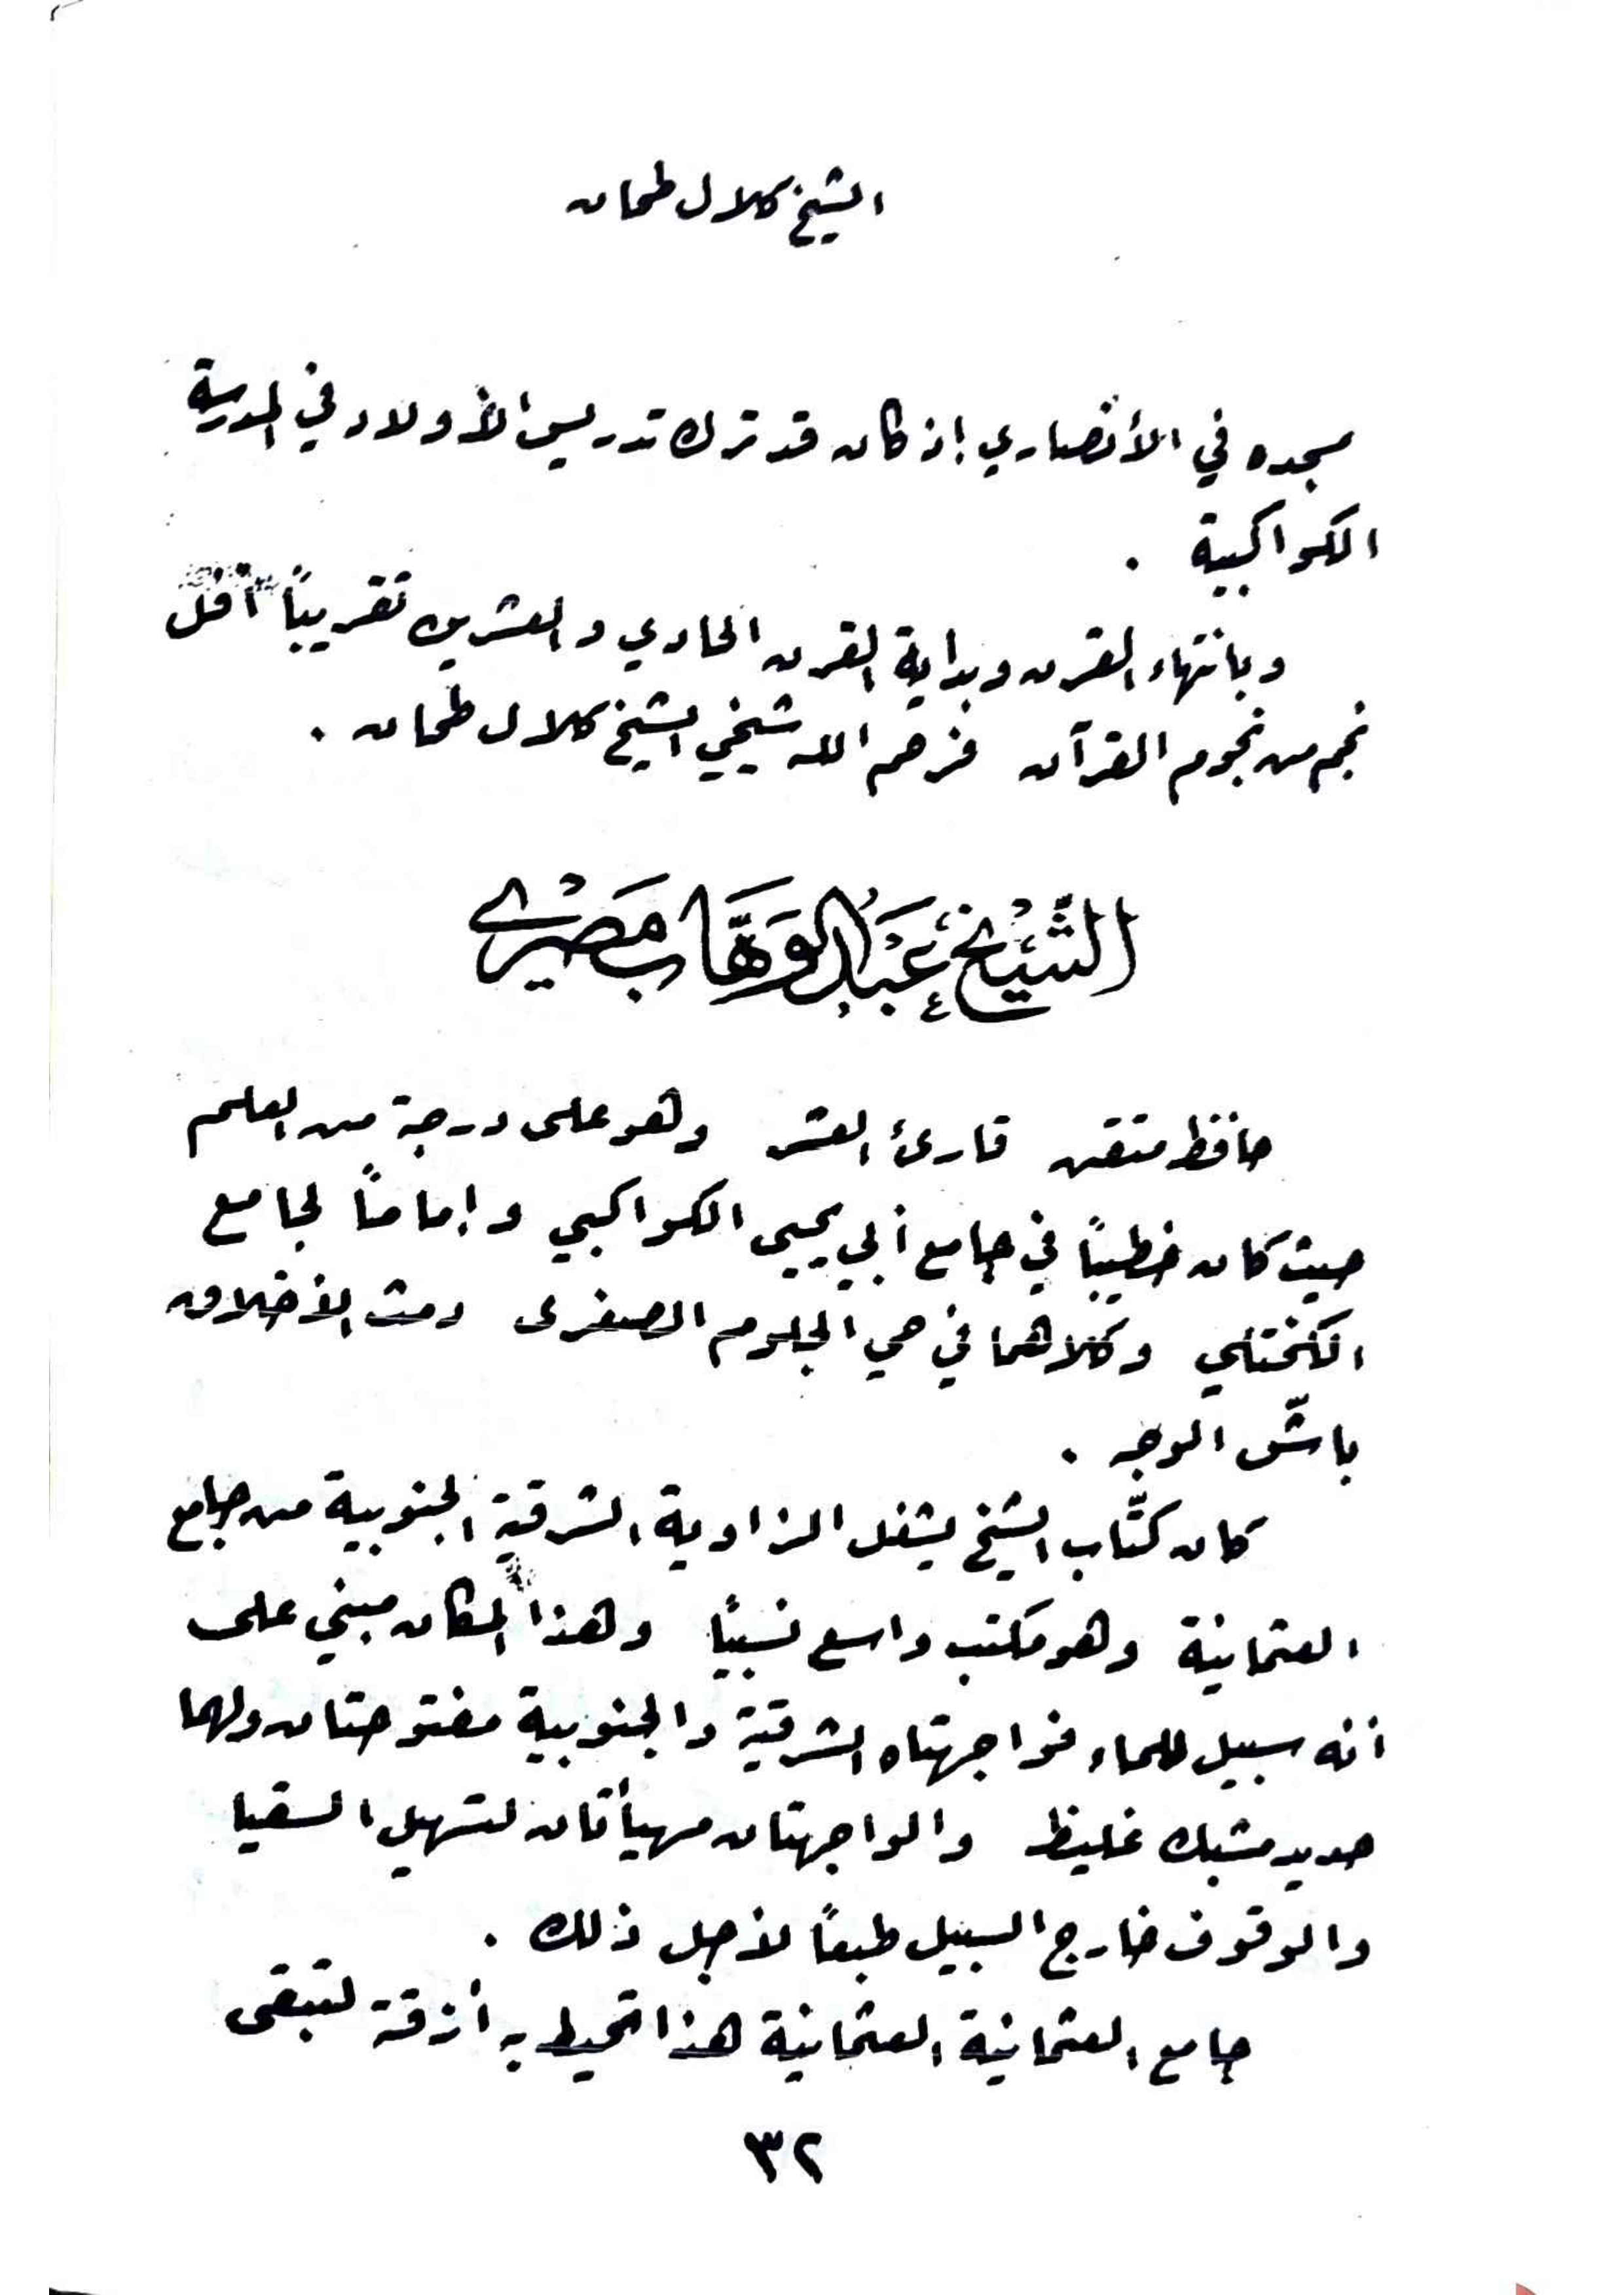 الشيخ كلال طحان
مسجده في الأنصاري إذ كان قد ترك تدريس الأولاد في المدرسة
الكواكبية .
وبانتهاء القرن وبداية القرن الحادي والعشرين تقريباً أفل
نجم من نجوم القرآن فرحم الله شيخي الشيخ كلال طحان .
الشَّيْخ عَبْد الوَهَّاب مَصْري
حافظ متقن قارئ العشر وهو على درجة من العلم
حيث كان خطيباً في جامع أبي يحيى الكواكبي وإماماً لجامع
الكختلي وكلاهما في حي الجلوم الصغرى دمث الأخلاق
باشّ الوجه .
كان كتّاب الشيخ يشغل الزاوية الشرقية الجنوبية من جامع
العثمانية وهو مكتب واسع نسبياً وهذا المكان مبني على
أنه سبيل للماء فواجهتاه الشرقية والجنوبية مفتوحتان ولهما
حديد مشبك غليظ والواجهتان مهيأتان لتسهيل السقيا
والوقوف خارج السبيل طبعاً لأجل ذلك .
جامع العثمانية العثمانية هذا تحيط به أزقة لتبقى
٣٢